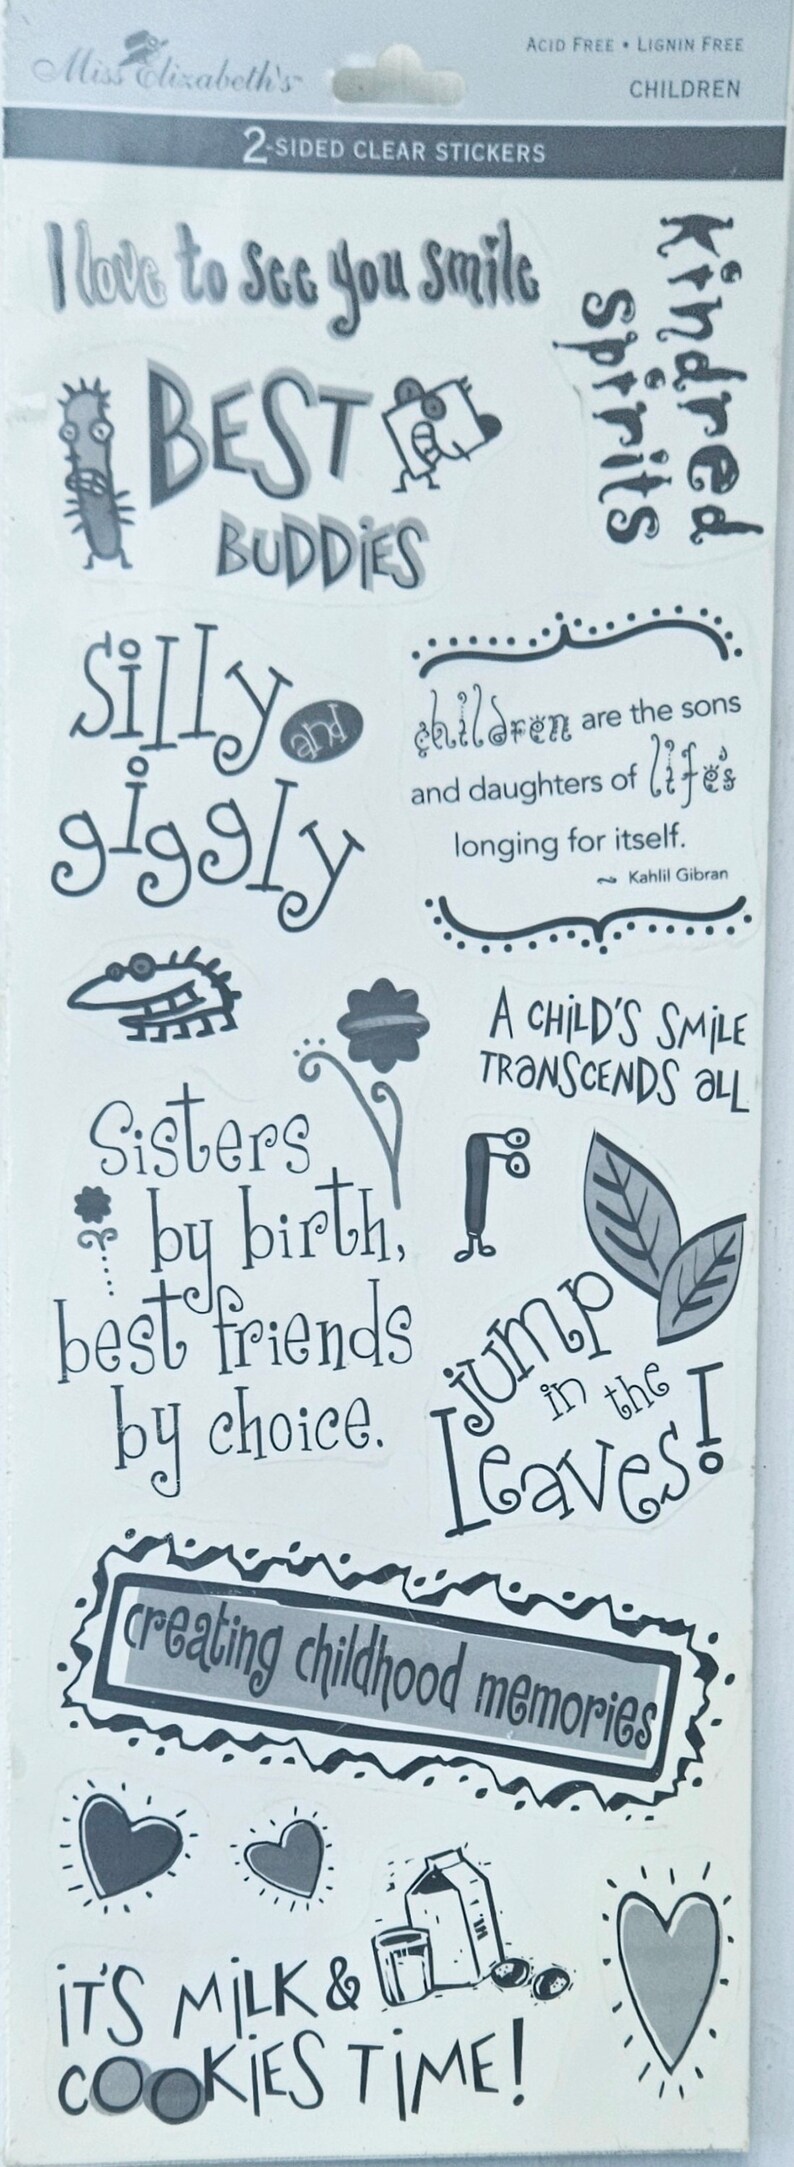 Miss Elizabeth's™
ACID FREE • LIGNIN FREE
CHILDREN
2-SIDED CLEAR STICKERS
I love to see you smile
kindred
spirits
BEST
BUDDiES
silly and
giggly
children are the sons
and daughters of life's
longing for itself.
~ Kahlil Gibran
A CHiLD'S SMiLE
TRANSCENDS aLL
Sisters
by birth,
best friends
by choice.
jump
in the
leaves!
creating childhood memories
MILK
iT'S MiLK &
COOKiES TiME!